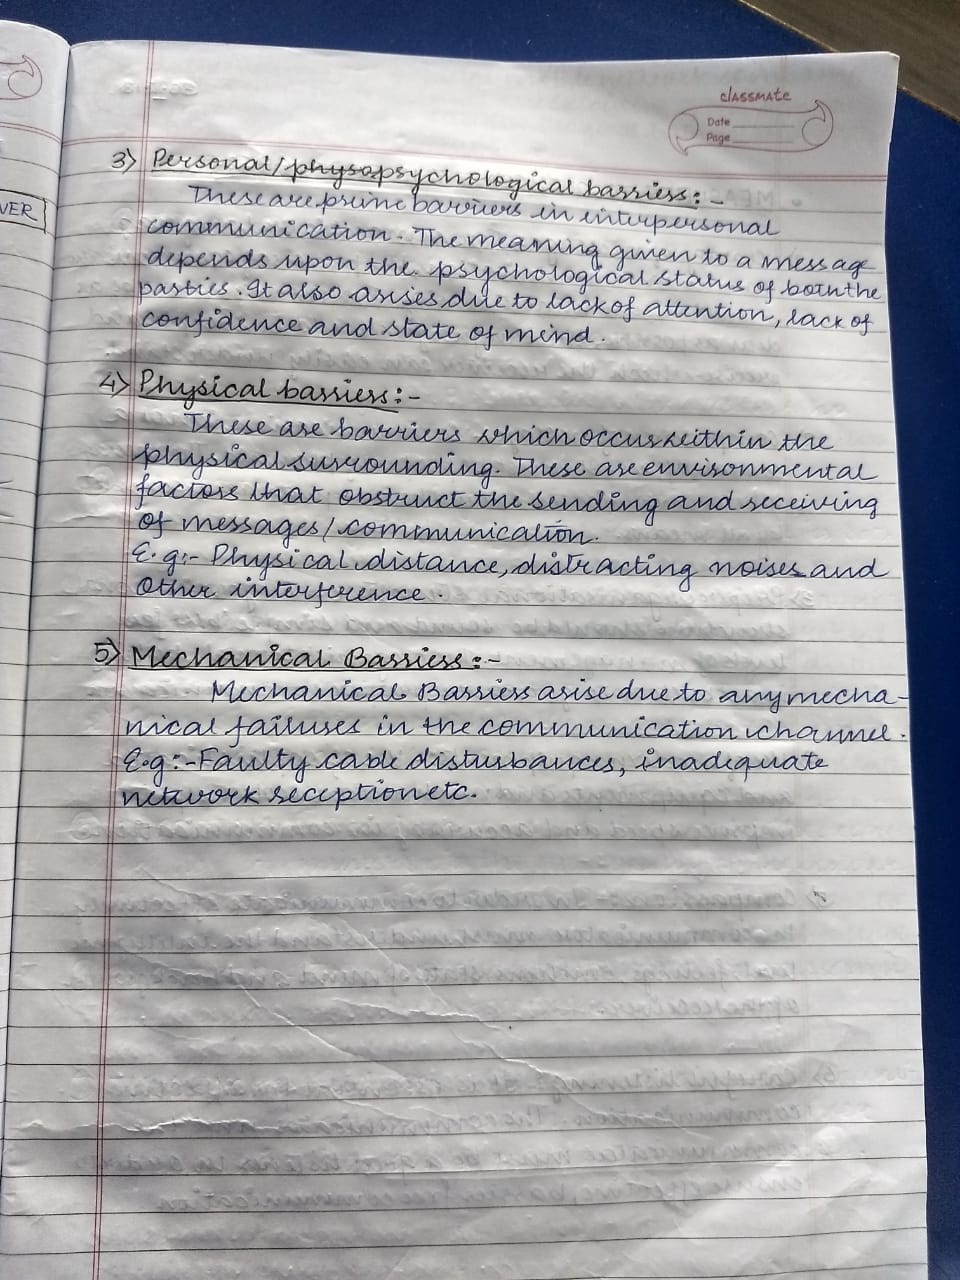 classmate
Date
Page
VER
3) Personal/physopsychological barriers:-
These are prime barriers in interpersonal
communication. The meaning given to a message
depends upon the psychological status of both the
parties. It also arises due to lack of attention, lack of
confidence and state of mind.
4) Physical barriers:-
These are barriers which occurs within the
physical surrounding. These are environmental
factors that obstruct the sending and receiving
of messages/communication.
E.g:- Physical distance, distracting noises and
other interference.
5) Mechanical Barriers:-
Mechanical Barriers arise due to any mecha-
nical failures in the communication channel.
E.g:- Faulty cable disturbances, inadequate
network reception etc.